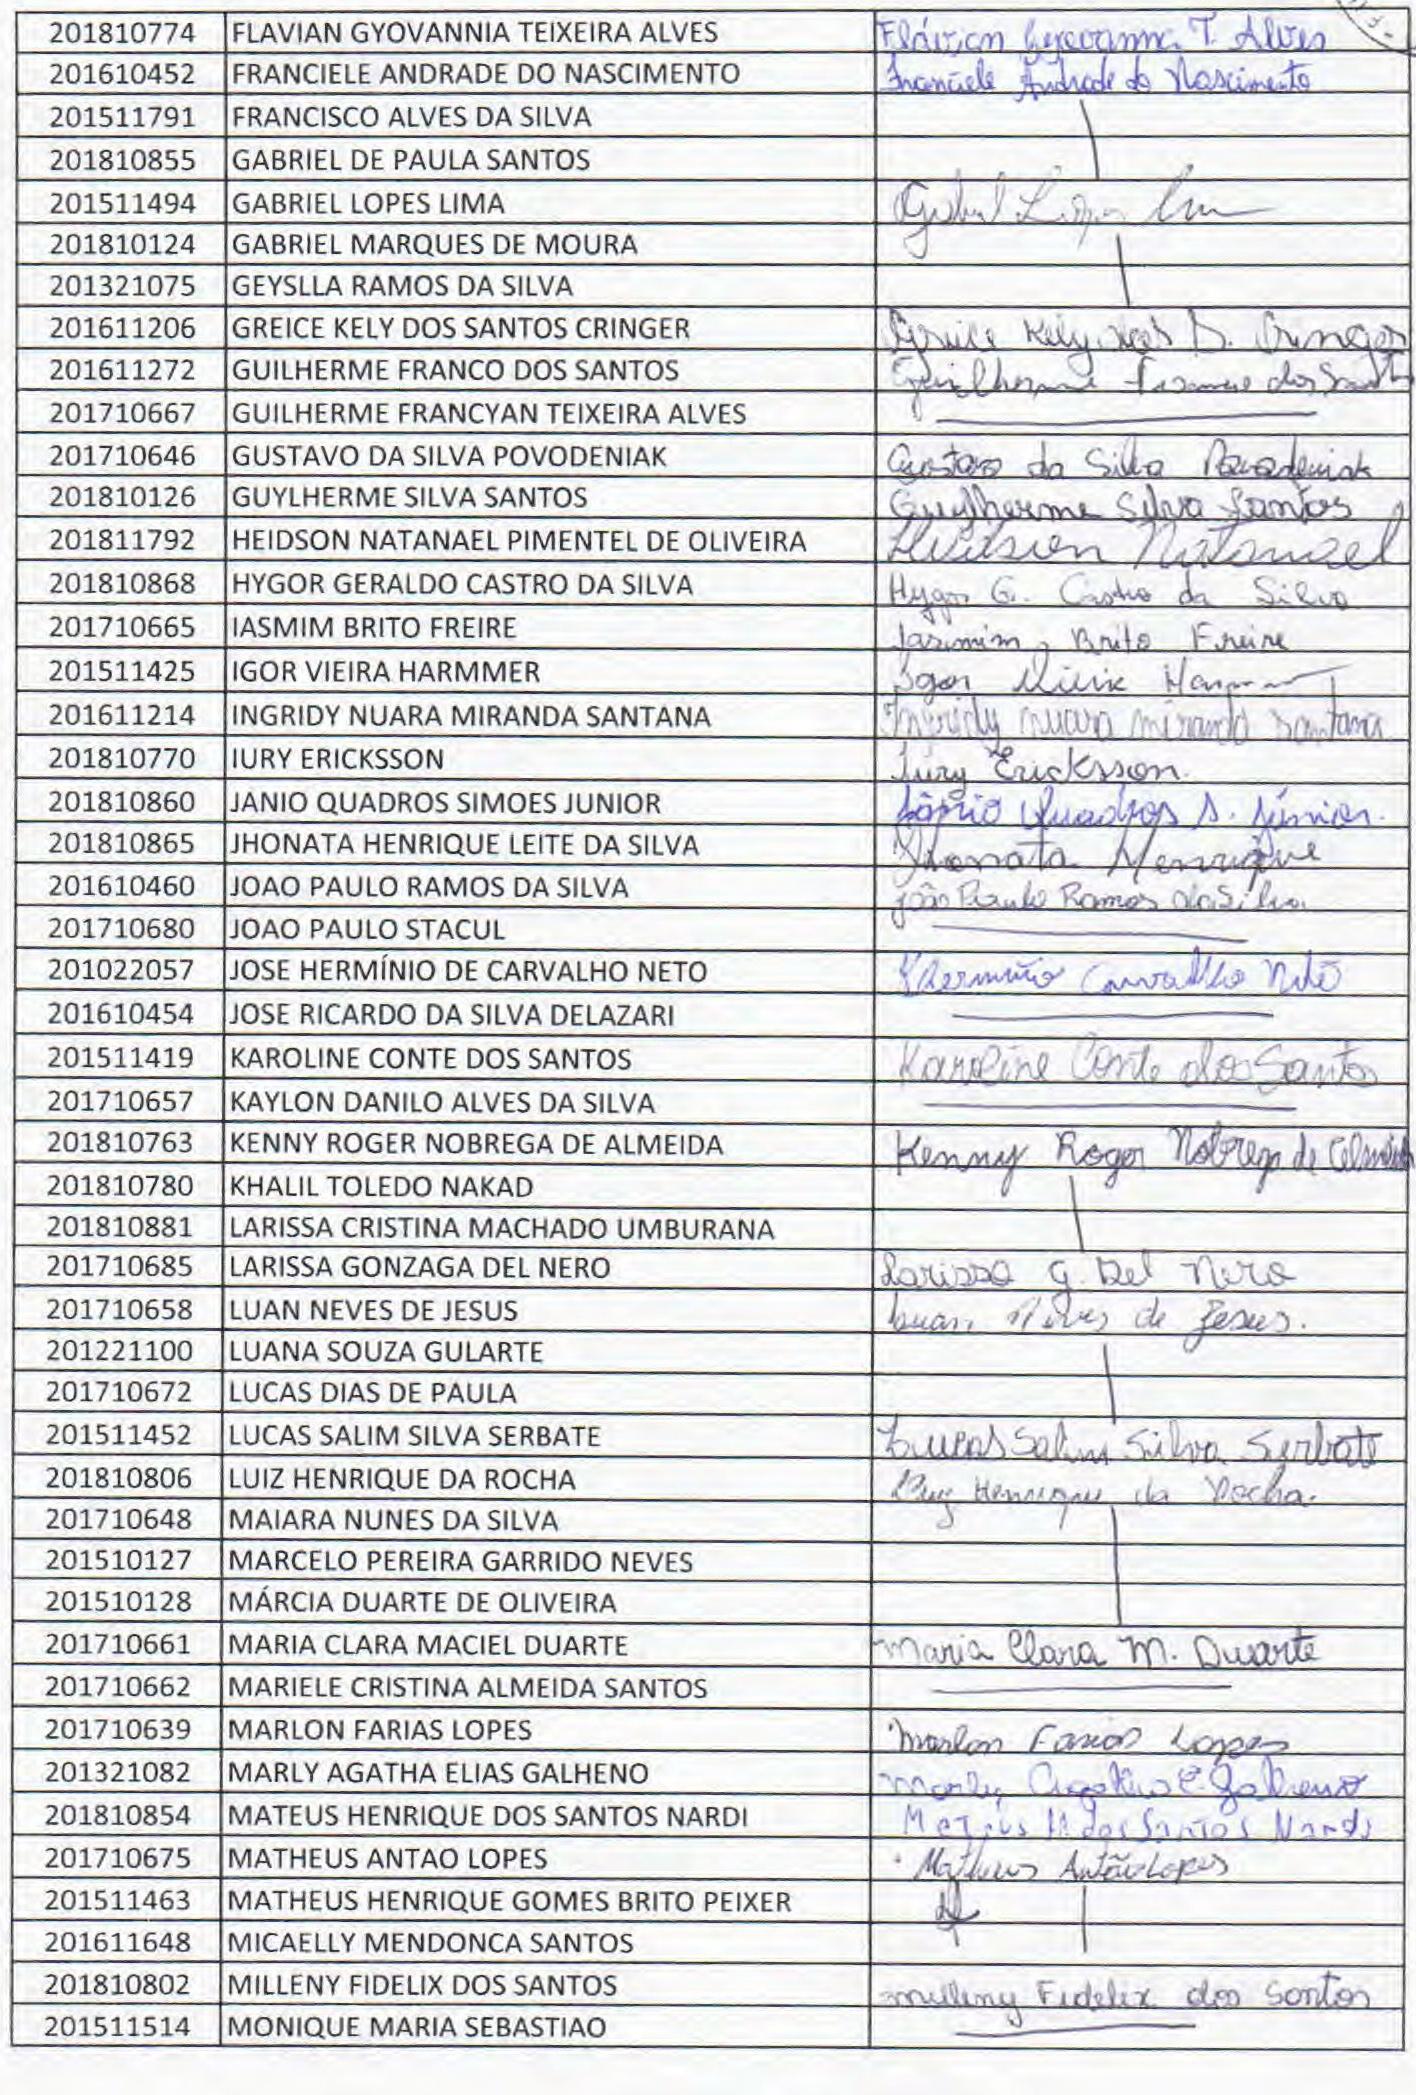 201810774 FLAVIAN GYOVANNIA TEIXEIRA ALVES Flávian Gyovanna T. Alves
201610452 FRANCIELE ANDRADE DO NASCIMENTO Franciele Andrade do Nascimento
201511791 FRANCISCO ALVES DA SILVA
201810855 GABRIEL DE PAULA SANTOS
201511494 GABRIEL LOPES LIMA Gabriel Lopes Lima
201810124 GABRIEL MARQUES DE MOURA
201321075 GEYSLLA RAMOS DA SILVA
201611206 GREICE KELY DOS SANTOS CRINGER Greice Kely dos S. Cringer
201611272 GUILHERME FRANCO DOS SANTOS Guilherme Franco dos Santos
201710667 GUILHERME FRANCYAN TEIXEIRA ALVES
201710646 GUSTAVO DA SILVA POVODENIAK Gustavo da Silva Povodeniak
201810126 GUYLHERME SILVA SANTOS Guylherme Silva Santos
201811792 HEIDSON NATANAEL PIMENTEL DE OLIVEIRA Heidson Natanael
201810868 HYGOR GERALDO CASTRO DA SILVA Hygor G. Castro da Silva
201710665 IASMIM BRITO FREIRE Iasmim Brito Freire
201511425 IGOR VIEIRA HARMMER Igor Vieira
201611214 INGRIDY NUARA MIRANDA SANTANA Ingridy nuara miranda Santana
201810770 IURY ERICKSSON Iury Ericksson.
201810860 JÂNIO QUADROS SIMOES JUNIOR Jânio Quadros S. Júnior.
201810865 JHONATA HENRIQUE LEITE DA SILVA Jhonata Henrique
201610460 JOAO PAULO RAMOS DA SILVA joão Paulo Ramos da Silva.
201710680 JOAO PAULO STACUL
201022057 JOSE HERMÍNIO DE CARVALHO NETO Carvalho Neto
201610454 JOSE RICARDO DA SILVA DELAZARI
201511419 KAROLINE CONTE DOS SANTOS Karoline Conte dos Santos
201710657 KAYLON DANILO ALVES DA SILVA
201810763 KENNY ROGER NOBREGA DE ALMEIDA Kenny Roger Nobrega de Almeida
201810780 KHALIL TOLEDO NAKAD
201810881 LARISSA CRISTINA MACHADO UMBURANA
201710685 LARISSA GONZAGA DEL NERO Larissa G. Del Nero
201710658 LUAN NEVES DE JESUS Luan Neves de Jesus.
201221100 LUANA SOUZA GULARTE
201710672 LUCAS DIAS DE PAULA
201511452 LUCAS SALIM SILVA SERBATE Lucas Salim Silva Serbate
201810806 LUIZ HENRIQUE DA ROCHA Luiz Henrique da Rocha.
201710648 MAIARA NUNES DA SILVA
201510127 MARCELO PEREIRA GARRIDO NEVES
201510128 MÁRCIA DUARTE DE OLIVEIRA
201710661 MARIA CLARA MACIEL DUARTE Maria Clara M. Duarte
201710662 MARIELE CRISTINA ALMEIDA SANTOS
201710639 MARLON FARIAS LOPES Marlon Farias Lopes
201321082 MARLY AGATHA ELIAS GALHENO Marly Agatha E. Galheno
201810854 MATEUS HENRIQUE DOS SANTOS NARDI Mateus H. dos Santos Nardi
201710675 MATHEUS ANTAO LOPES Matheus Antão Lopes
201511463 MATHEUS HENRIQUE GOMES BRITO PEIXER
201611648 MICAELLY MENDONCA SANTOS
201810802 MILLENY FIDELIX DOS SANTOS milleny Fidelix dos Santos
201511514 MONIQUE MARIA SEBASTIAO